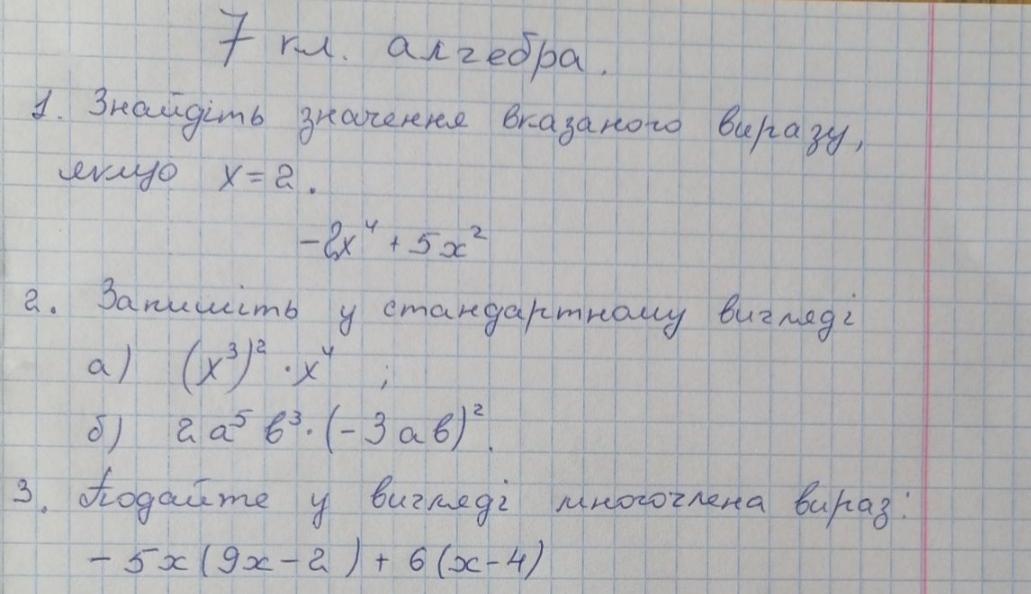 7 кл. алгебра.
1. Знайдіть значення вказаного виразу,
якщо x = 2.
-2x⁴ + 5x²
2. Запишіть у стандартному вигляді
а) (x³)² · x⁴ ;
б) 2a⁵b³ · (-3ab)².
3. Подайте у вигляді многочлена вираз:
-5x(9x-2) + 6(x-4)